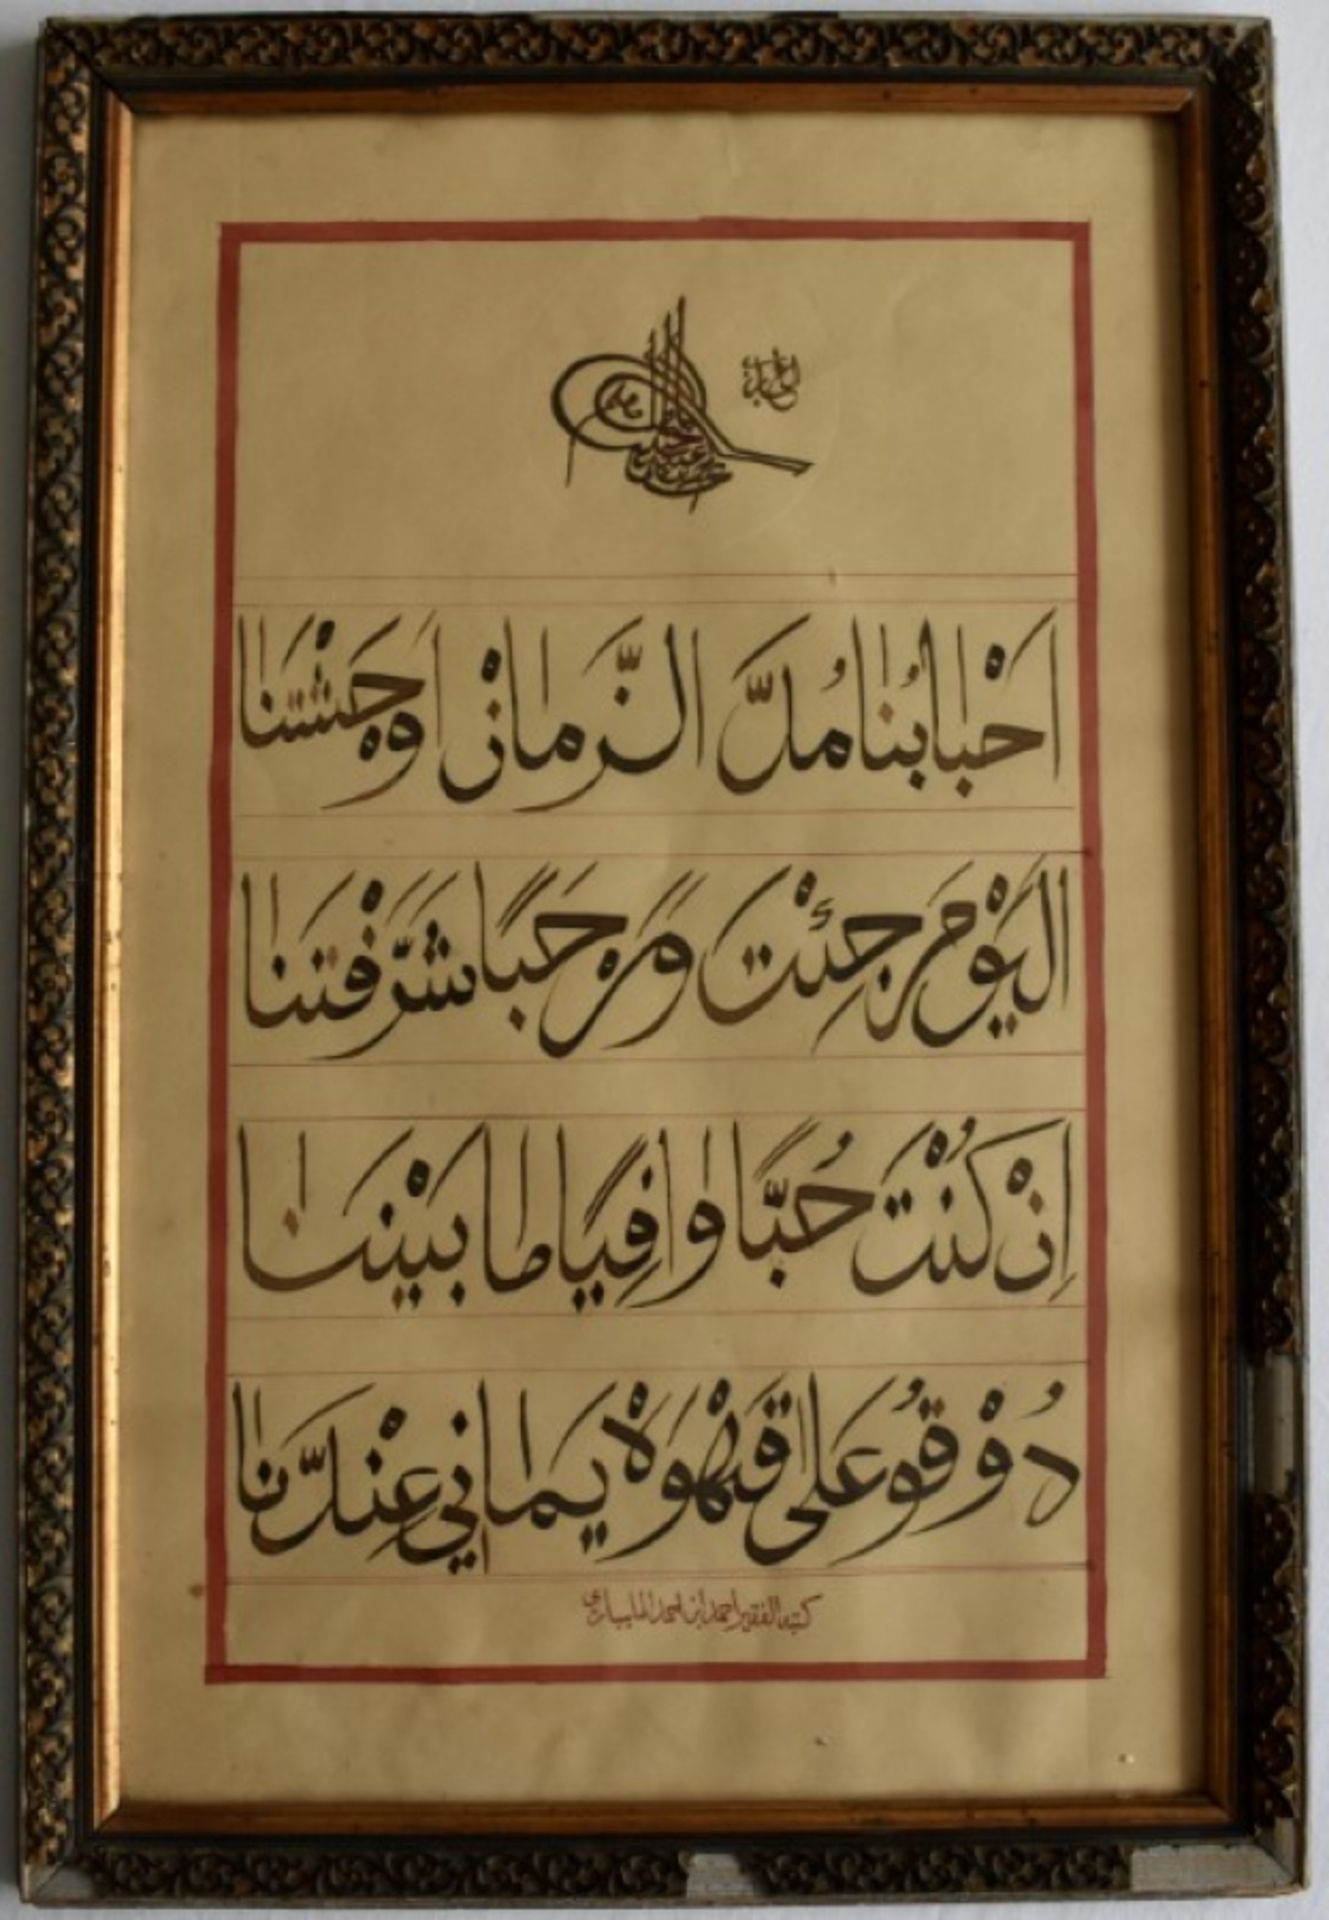 اَحْبابُنا مُدَّ الزَّمانْ اَوحَشْتَنا
اليَوْمَ جِئْتَ وَمَرْحَبًا شَرَّفْتَنا
اِنْ كُنْتَ حُبًّا وافِيًا ما بَيْنَنا
ذُوْقُو عَلى قَهْوَهْ يَماني عِنْدَنا
كتبه الفقير احمد ابن احمد